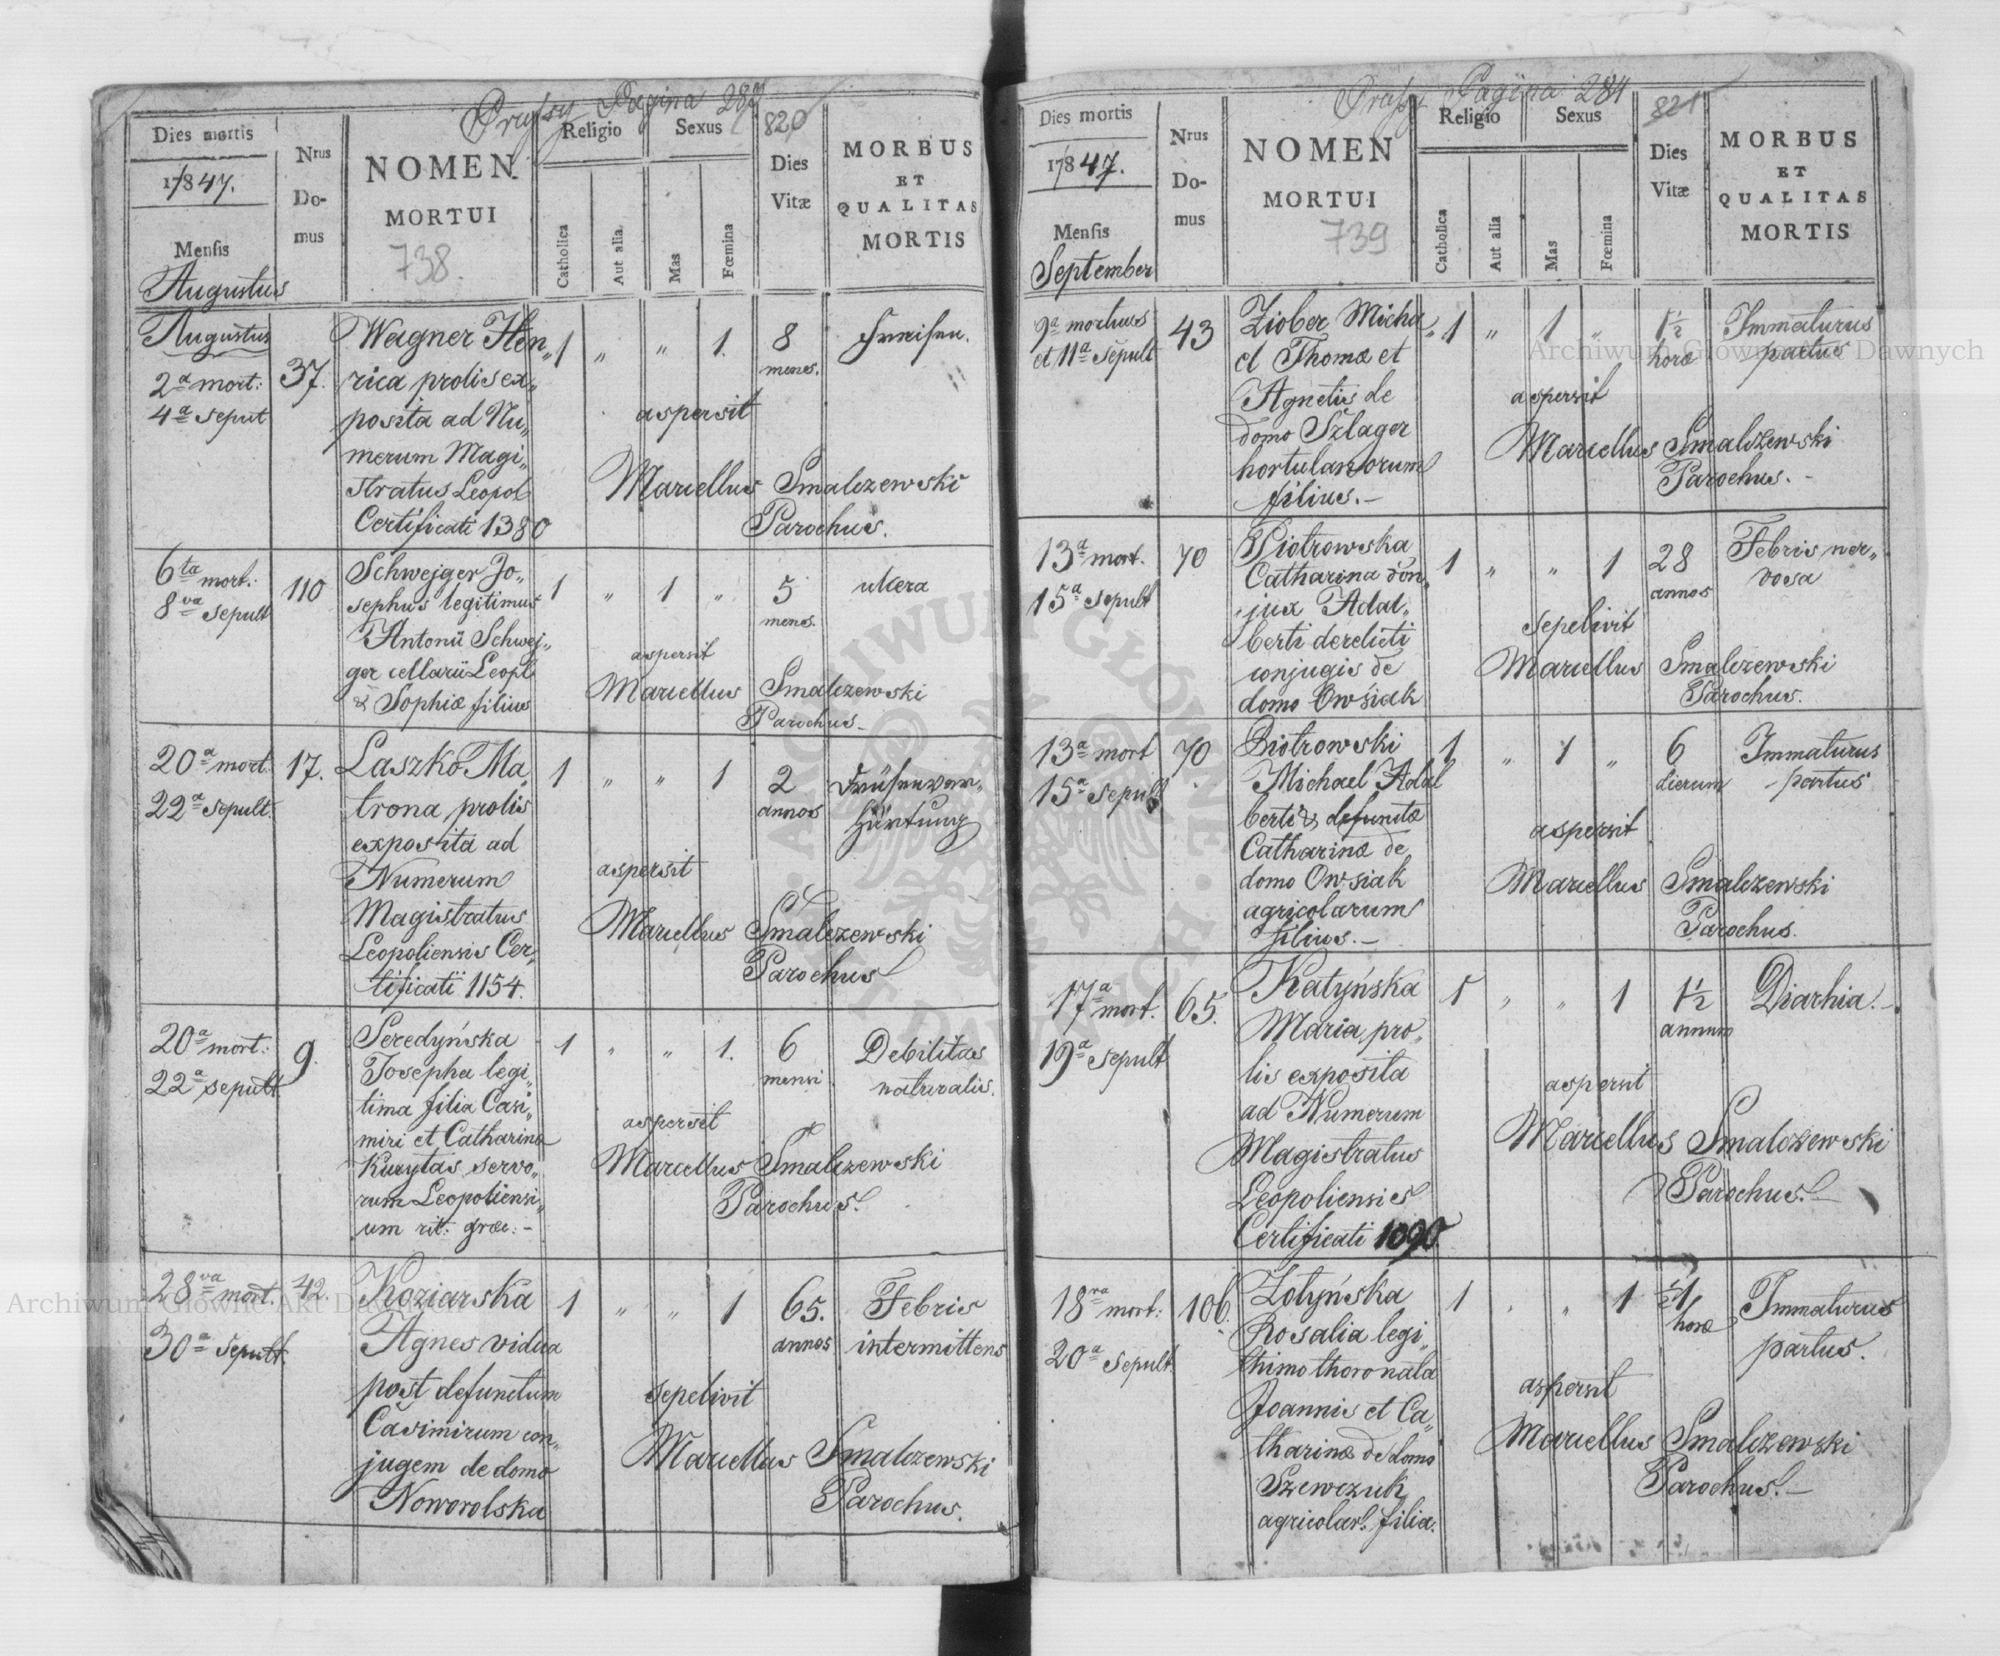 Prussy Pagina 287
820
Dies mortis
17847.
Mensis
Augustus
Nrus
Do-
mus
NOMEN
MORTUI
738.
Religio
Catholica
Aut alia.
Sexus
Mas
Fœmina
Dies
Vitæ
MORBUS
ET
QUALITAS
MORTIS
Augustus
2a mort:
4a Seput
37.
Wagner Hen„
rica prolis ex„
posita ad Nu„
merum Magi„
stratus Leopol
Certificati 1380
1 „ „ 1.
8
menes.
Fraisen.
aspersit
Marcellus Smalczewski
Parochus.
6ta mort.:
8va sepult
110
Schwejger Jo„
sephus legitimus
Antonii Schwej„
ger cellarii Leopl
& Sophiæ filius
1 „ 1 „
5
menes.
ulcera
aspersit
Marcellus Smalczewski
Parochus.
20a mort.
22a sepult.
17.
Laszko Ma„
trona prolis
exposita ad
Numerum
Magistratus
Leopoliensis Cer„
tificati 1154.
1 „ „ 1
2
annos
Drüsenver„
härtung
aspersit
Marcellus Smalczewski
Parochus
20a mort.:
22a sepult.
9.
Seredyńska
Josepha legi„
tima filia Casi„
miri et Catharina
Kurytas servo„
rum Leopoliensi„
um rit. græc: -
1 „ „ 1.
6
mensi
Debilitas
naturalis.
aspersit
Marcellus Smalczewski
Parochus.
28va mort.
30a Sepult.
42.
Koziarska
Agnes vidua
post defunctum
Casimirum con„
jugem de domo
Noworolska
1 „ „ 1
65.
annos
Febris
intermittens
sepelivit
Marcellus Smalczewski
Parochus.
Prussy Pagina 284
821
Dies mortis
17847.
Mensis
September
Nrus
Do-
mus
NOMEN
MORTUI
739
Religio
Catholica
Aut alia
Sexus
Mas
Fœmina
Dies
Vitæ
MORBUS
ET
QUALITAS
MORTIS
9a mortuus
et 11a Sepult
43
Ziober Micha„
el Thomæ et
Agnetis de
domo Szlager
hortulanorum
filius.-
1 „ 1 „
1½
horæ
Immaturus
partus
aspersit
Marcellus Smalczewski
Parochus. -
13a mort.
15a sepult
70
Piotrowska
Catharina con„
jux Adal„
berti derelicti
conjugis de
domo Owsiak
1 „ „ 1
28
annos
Febris ner„
vosa
sepelivit
Marcellus Smalczewski
Parochus.
13a mort
15a Sepult
70
Piotrowski
Michael Adal
berti & defunctæ
Catharinæ de
domo Owsiak
agricolarum
filius.-
1 „ 1 „
6
dierum
Immaturus
partus
aspersit
Marcellus Smalczewski
Parochus.
17a mort.
19a Sepult
65.
Katyńska
Maria pro„
lis exposita
ad Numerum
Magistratus
Leopoliensis
Certificati 1090
1 „ „ 1
1½
annum
Diarhia.-
aspersit
Marcellus Smalczewski
Parochus.-
18va mort:
20a Sepult
106.
Zotyńska
Rosalia legi„
thimo thoro nata
Joannis et Ca„
tharinæ de domo
Szewczuk
agricolar. filia.
1 „ „ 1
½
horæ
Immaturus
partus.
aspersit
Marcellus Smalczewski
Parochus.-
Archiwum Główne Akt Dawnych
ARCHIWUM GŁÓWNE AKT DAWNYCH
Archiwum Główne Akt Dawnych